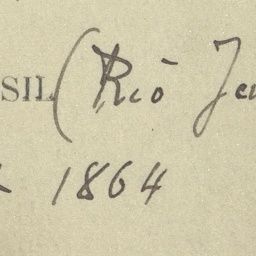 SIL (Rio Jen
1864